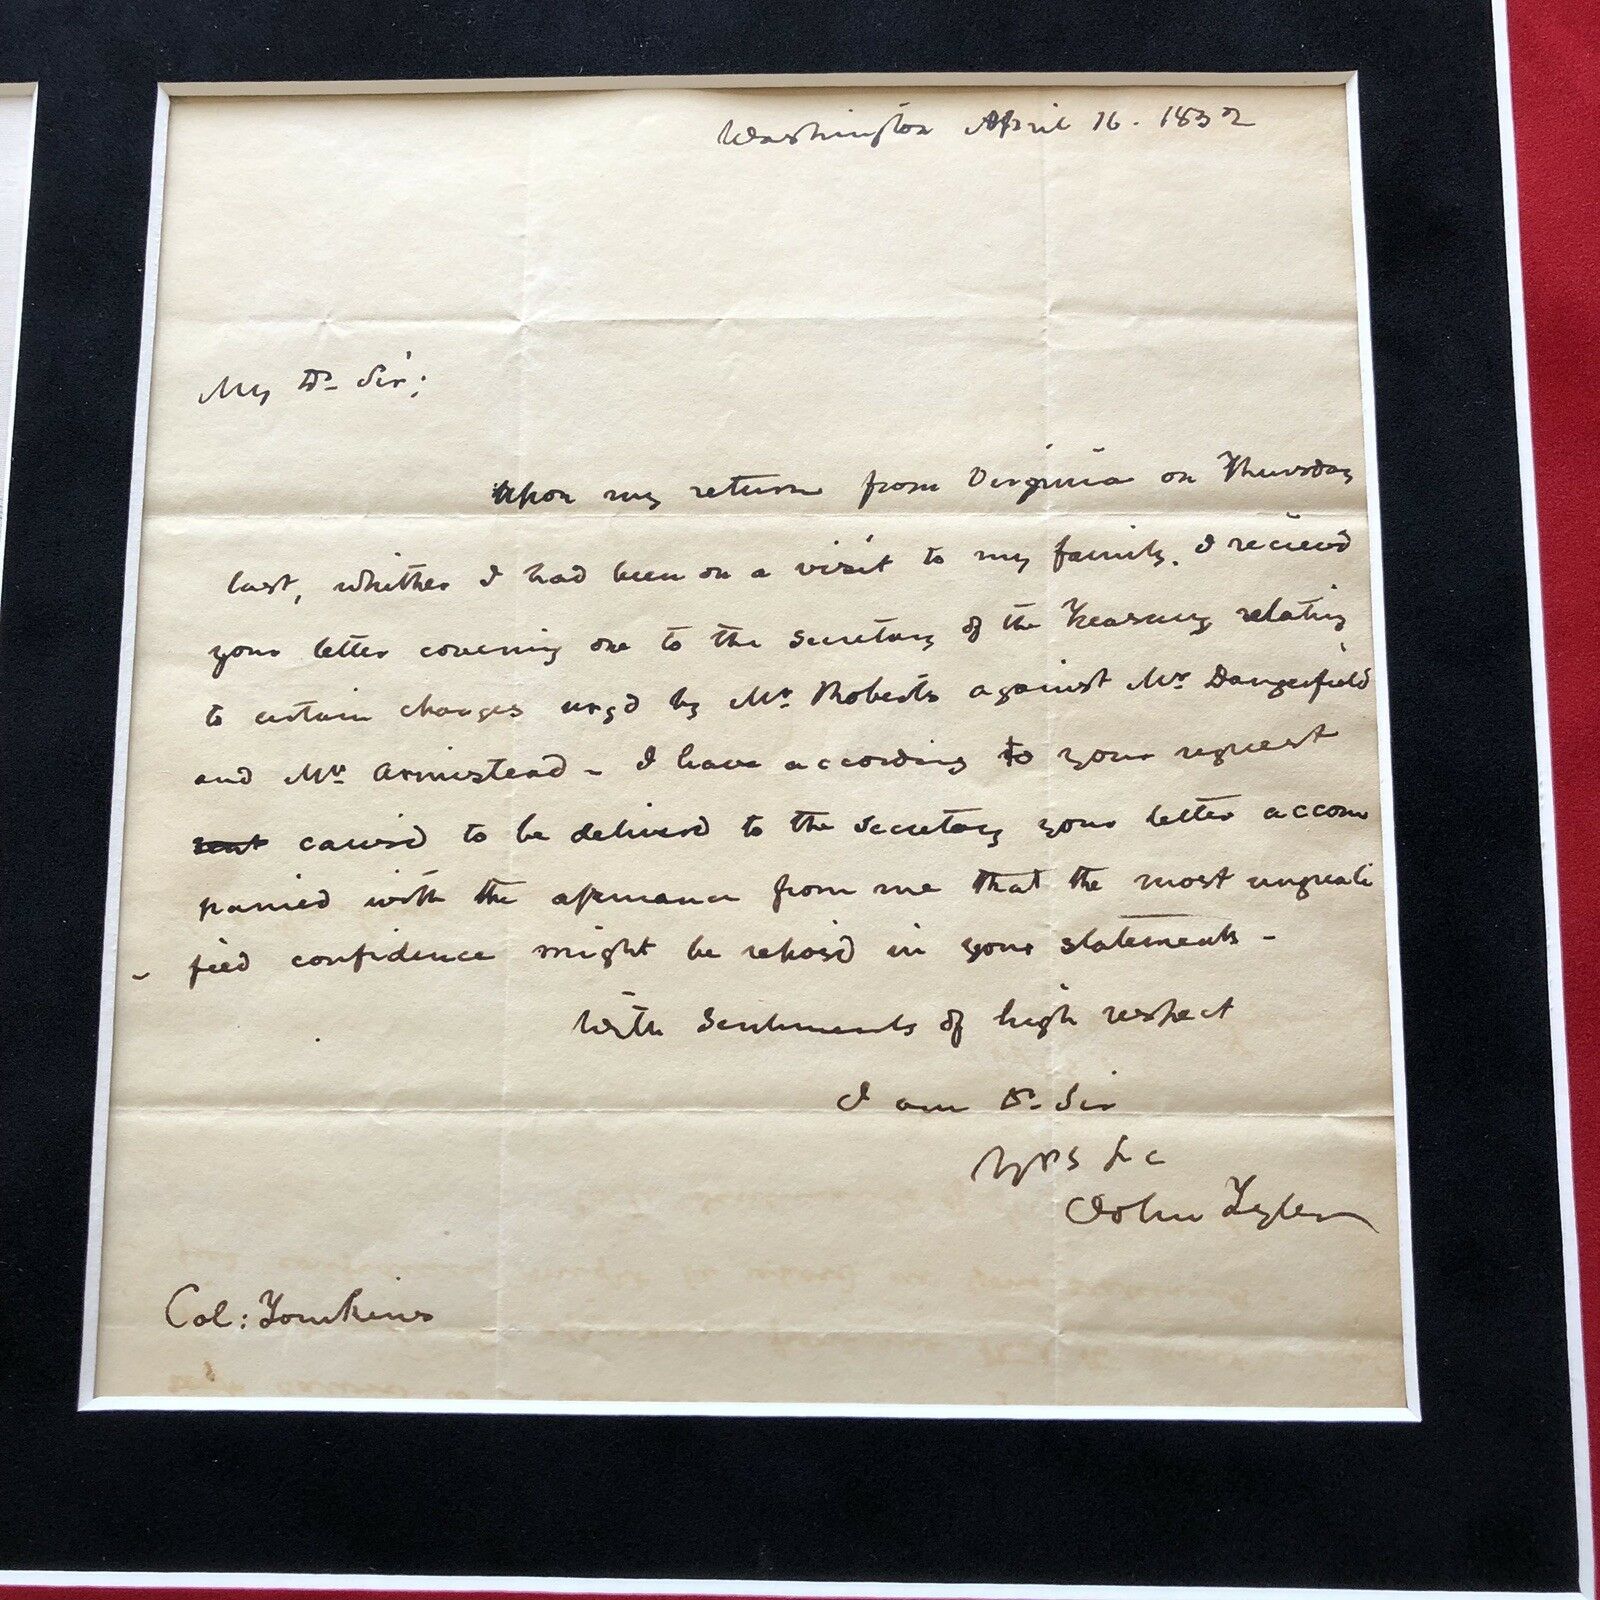 Washington April 16. 1832
My Dr. Sir;
Upon my return from Virginia on Thursday
last, whither I had been on a visit to my family. I recievd
your letter covering one to the Secretary of the Treasury relating
to certain charges urgd by Mr. Roberts against Mr. Dangerfield
and Mr. Armistead - I have according to your request
sent causd to be deliverd to the Secretary your letter accom
panied with the assurance from me that the most unquali
- fied confidence might be reposd in your statements -
With Sentiments of high respect
I am Dr. Sir
Yrs &c
John Tyler
Col: Tomkins